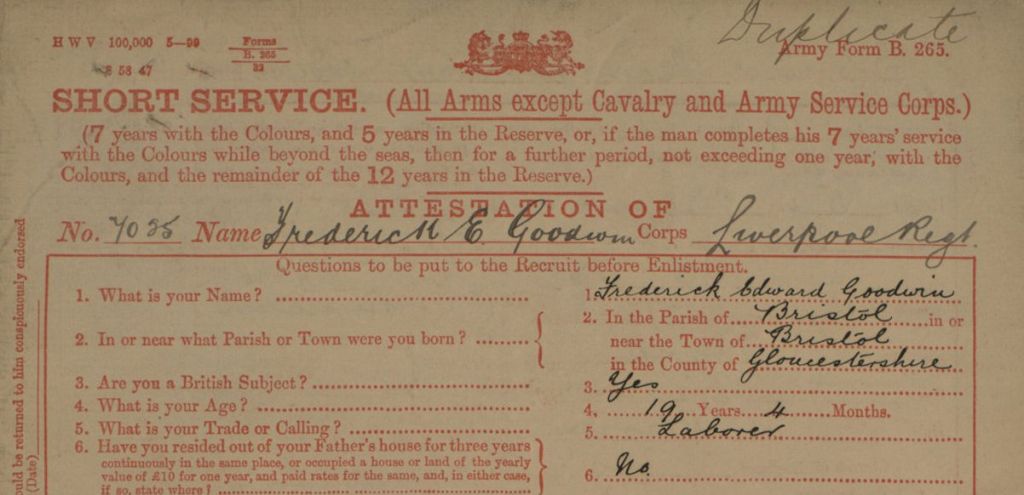 H W V 100,000 5—99 Forms
B. 265
32
8 58 47
Duplicate
Army Form B. 265.
SHORT SERVICE. (All Arms except Cavalry and Army Service Corps.)
(7 years with the Colours, and 5 years in the Reserve, or, if the man completes his 7 years' service
with the Colours while beyond the seas, then for a further period, not exceeding one year, with the
Colours, and the remainder of the 12 years in the Reserve.)
ATTESTATION OF
No. 7035 Name Frederick E. Goodwin Corps Liverpool Regt.
Questions to be put to the Recruit before Enlistment.
1. What is your Name? 1. Frederick Edward Goodwin
2. In or near what Parish or Town were you born? 2. In the Parish of Bristol in or
near the Town of Bristol
in the County of Gloucestershire
3. Are you a British Subject? 3. Yes
4. What is your Age? 4. 19 Years 4 Months.
5. What is your Trade or Calling? 5. Laborer
6. Have you resided out of your Father's house for three years
continuously in the same place, or occupied a house or land of the yearly
value of £10 for one year, and paid rates for the same, and, in either case,
if so, state where? 6. No.
ould be returned to him conspicuously endorsed
(Date)